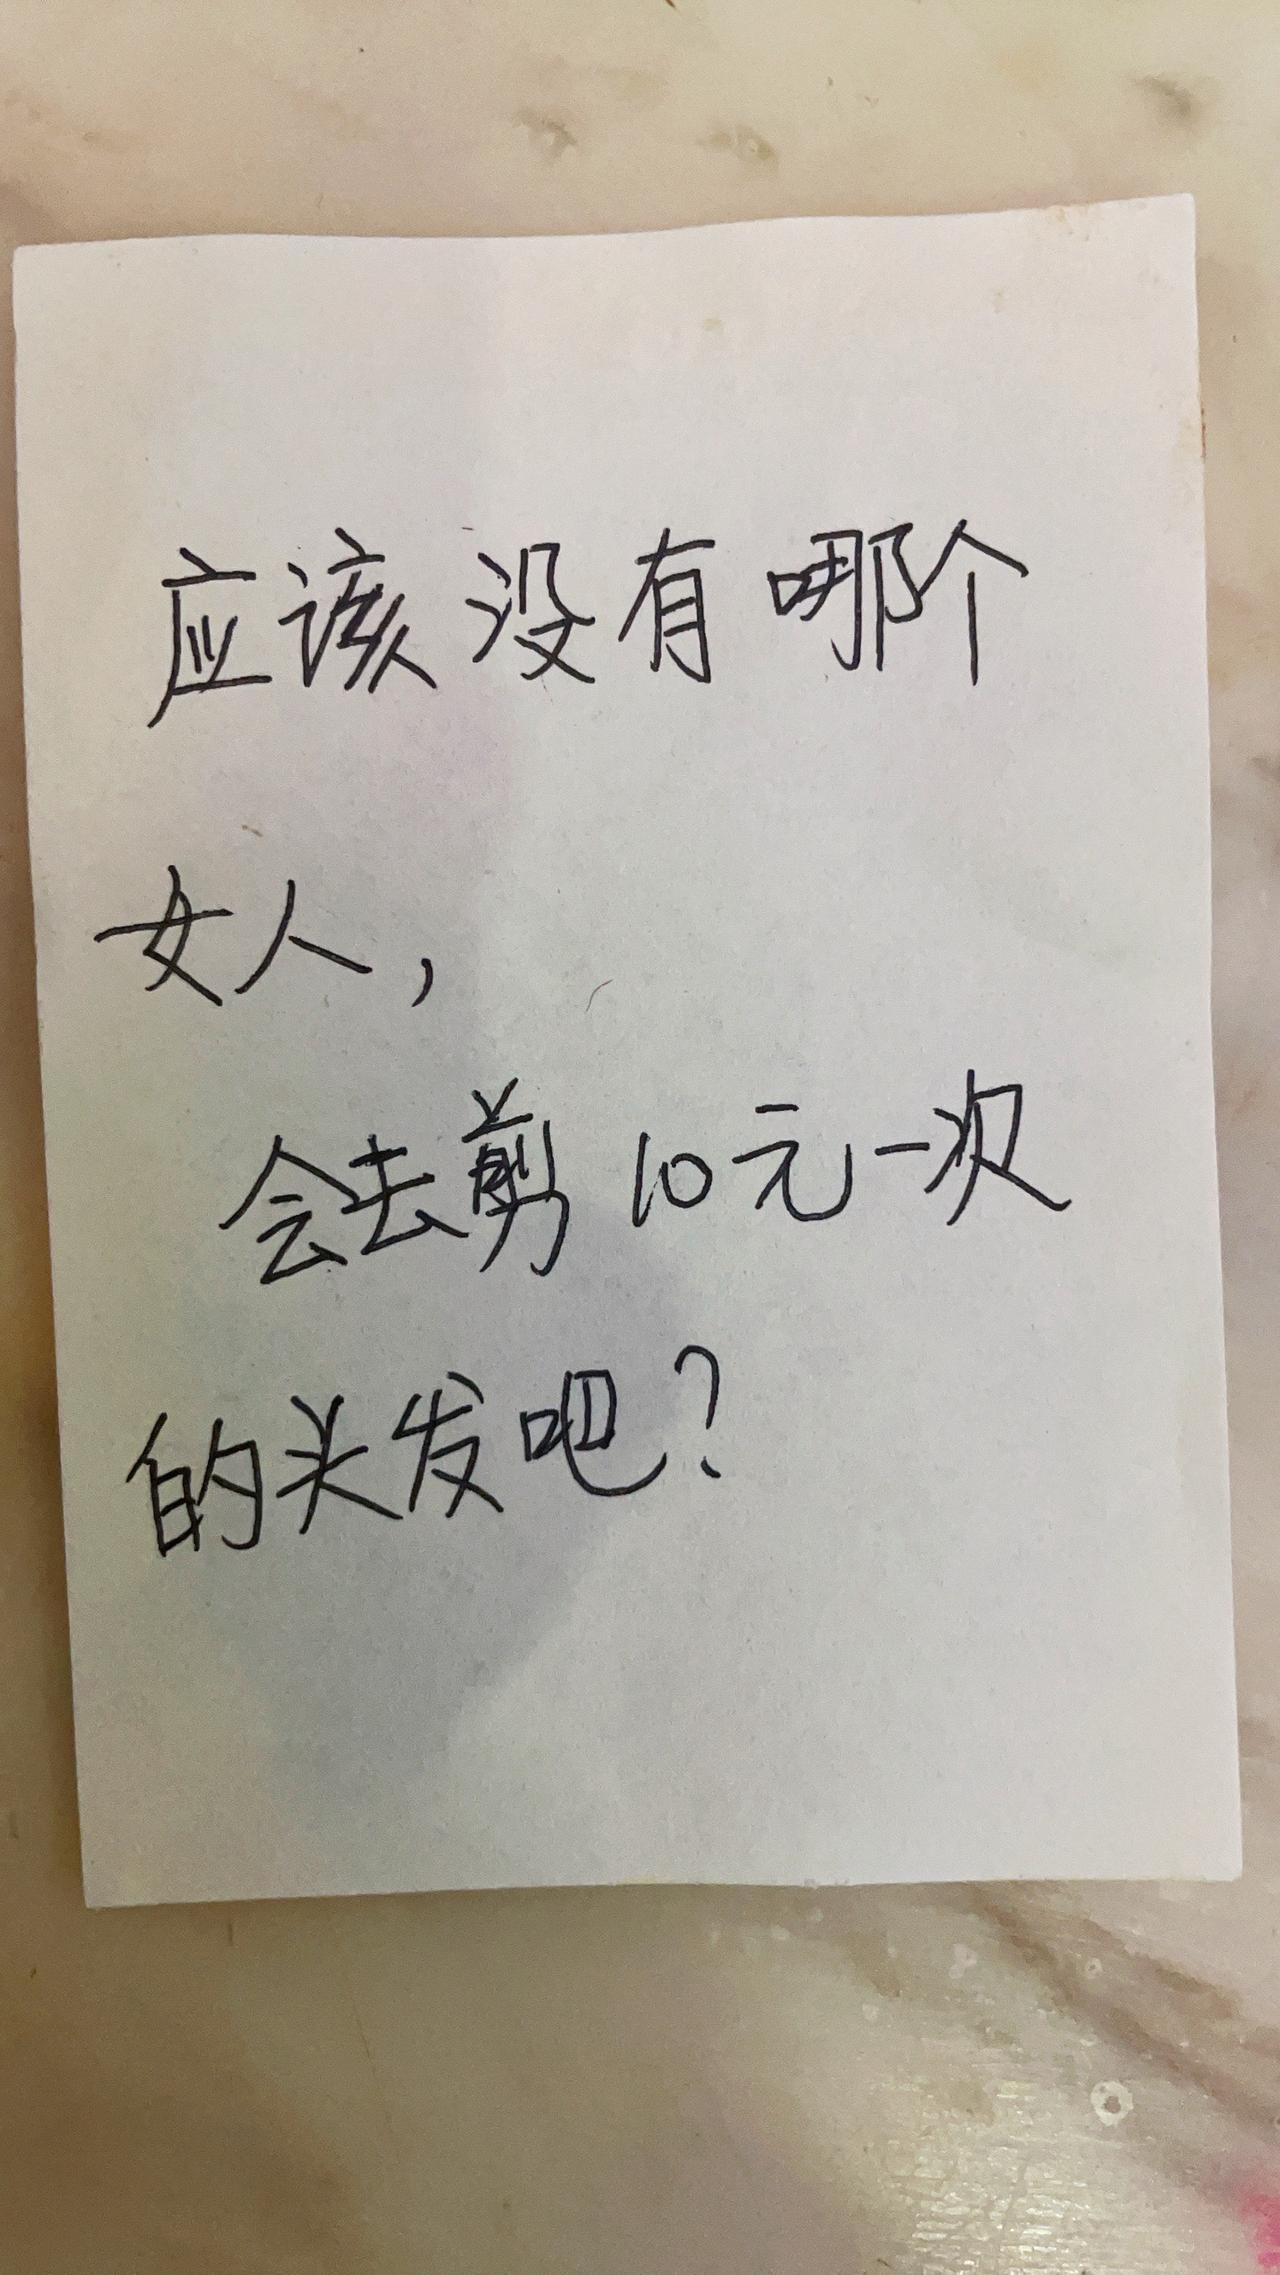 应该没有哪个
女人，
会去剪10元一次
的头发吧？